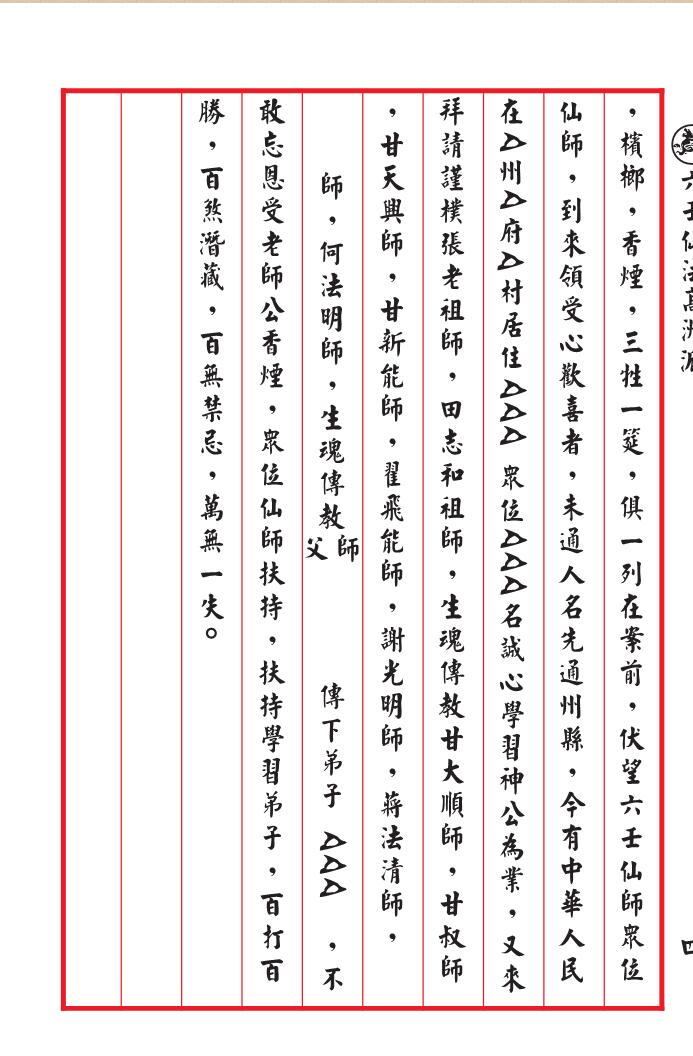 六壬仙法
四
，檳榔，香煙，三牲一筵，俱一列在案前，伏望六壬仙師眾位
仙師，到來領受心歡喜者，未通人名先通州縣，今有中華人民
在△州△府△村居住△△△　眾位△△△名誠心學習神公為業，又來
拜請謹樸張老祖師，田志和祖師，生魂傳教甘大順師，甘叔師
，甘天興師，甘新能師，翟飛能師，謝光明師，蔣法清師，
師，何法明師，生魂傳教師父　傳下弟子　△△△　，不
敢忘恩受老師公香煙，眾位仙師扶持，扶持學習弟子，百打百
勝，百煞潛藏，百無禁忌，萬無一失。